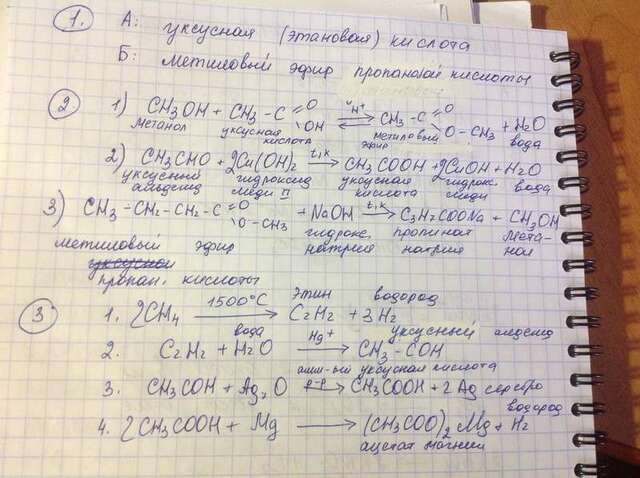 1. А: уксусная (этановая) кислота
Б: метиловый эфир пропановой кислоты
2. 1) CH3OH + CH3-C =O \OH ⇌ "H+ CH3-C =O \O-CH3 + H2O
метанол уксусная кислота метиловый эфир вода
2) CH3CHO + 2Cu(OH)2 t,k→ CH3COOH + 2CuOH + H2O
уксусный альдегид гидроксид меди II уксусная кислота гидрокс. меди вода
3) CH3-CH2-CH2-C =O \O-CH3 + NaOH t,k→ C3H7COONa + CH3OH
метиловый эфир гидрокс. натрия натрия метанол
пропан. кислоты
3. 1. 2CH4 1500°C→ C2H2 + 3H2
этин водород
2. C2H2 + H2O Hg+→ CH3-COH
вода уксусный альдегид
3. CH3COH + Ag2O р-р→ CH3COOH + 2Ag серебро
уксусная кислота
4. 2CH3COOH + Mg → (CH3COO)2Mg + H2
водород
ацетат магния